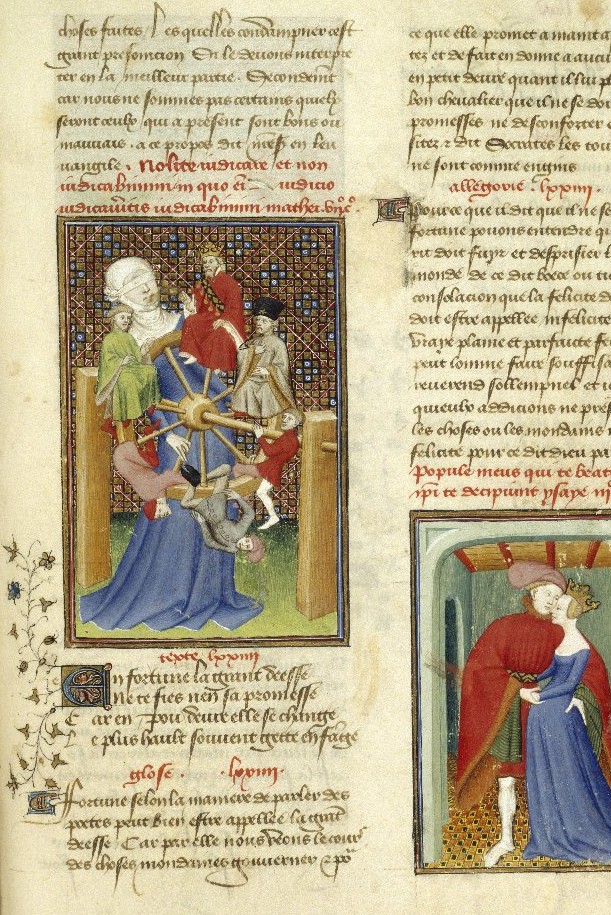 choses faites / Les quelles condampner cest
grant presoncion Si le devons interpre
ter en la meilleur partie. Secondeint
car nous ne sommes pas certains quielx
seront ceulx qui a present sont bons ou
mauvais. a ce propos dit en leu
uangile. Nolite iudicare et non
iudicabimini in quo iudicio
iudicaveritis iudicabimini mathei
texte lxxiiii
En fortune la grant deesse
Ne te fies nen sa promesse
Car en pou deure elle se change
Le plus hault souvent gette en fange
glose. lxxiiii.
Fortune selon la maniere de parler des
poetes peut bien estre appellee la grant
deesse Car par elle nous veons le cours
des choses mondaines gouverner
ce que elle promet a maint a
tez et de fait en donne a aucu
en petit deure quant il lui p
bon chevalier que il ne se doi
promesses ne desconforter e
sitez & dit Socrates les tou
ne sont comme engins
allegorie. lxxiiii.
Pource que il dit que il ne se
fortune pouons entendre qu
rit doit fuyr et desprisier l
monde de ce dit boece ou ti
consolacion que la felicite d
doit estre appellee infelicite
vraye plaine et parfaicte fe
peut lomme faire souffisa
reverend sollempnel et i
quieulx addicions ne pres
les choses ou les mondains
felicite pour ce dit dieu pa
Popule meus qui te beat
ipsi te decipiunt ysaye iii